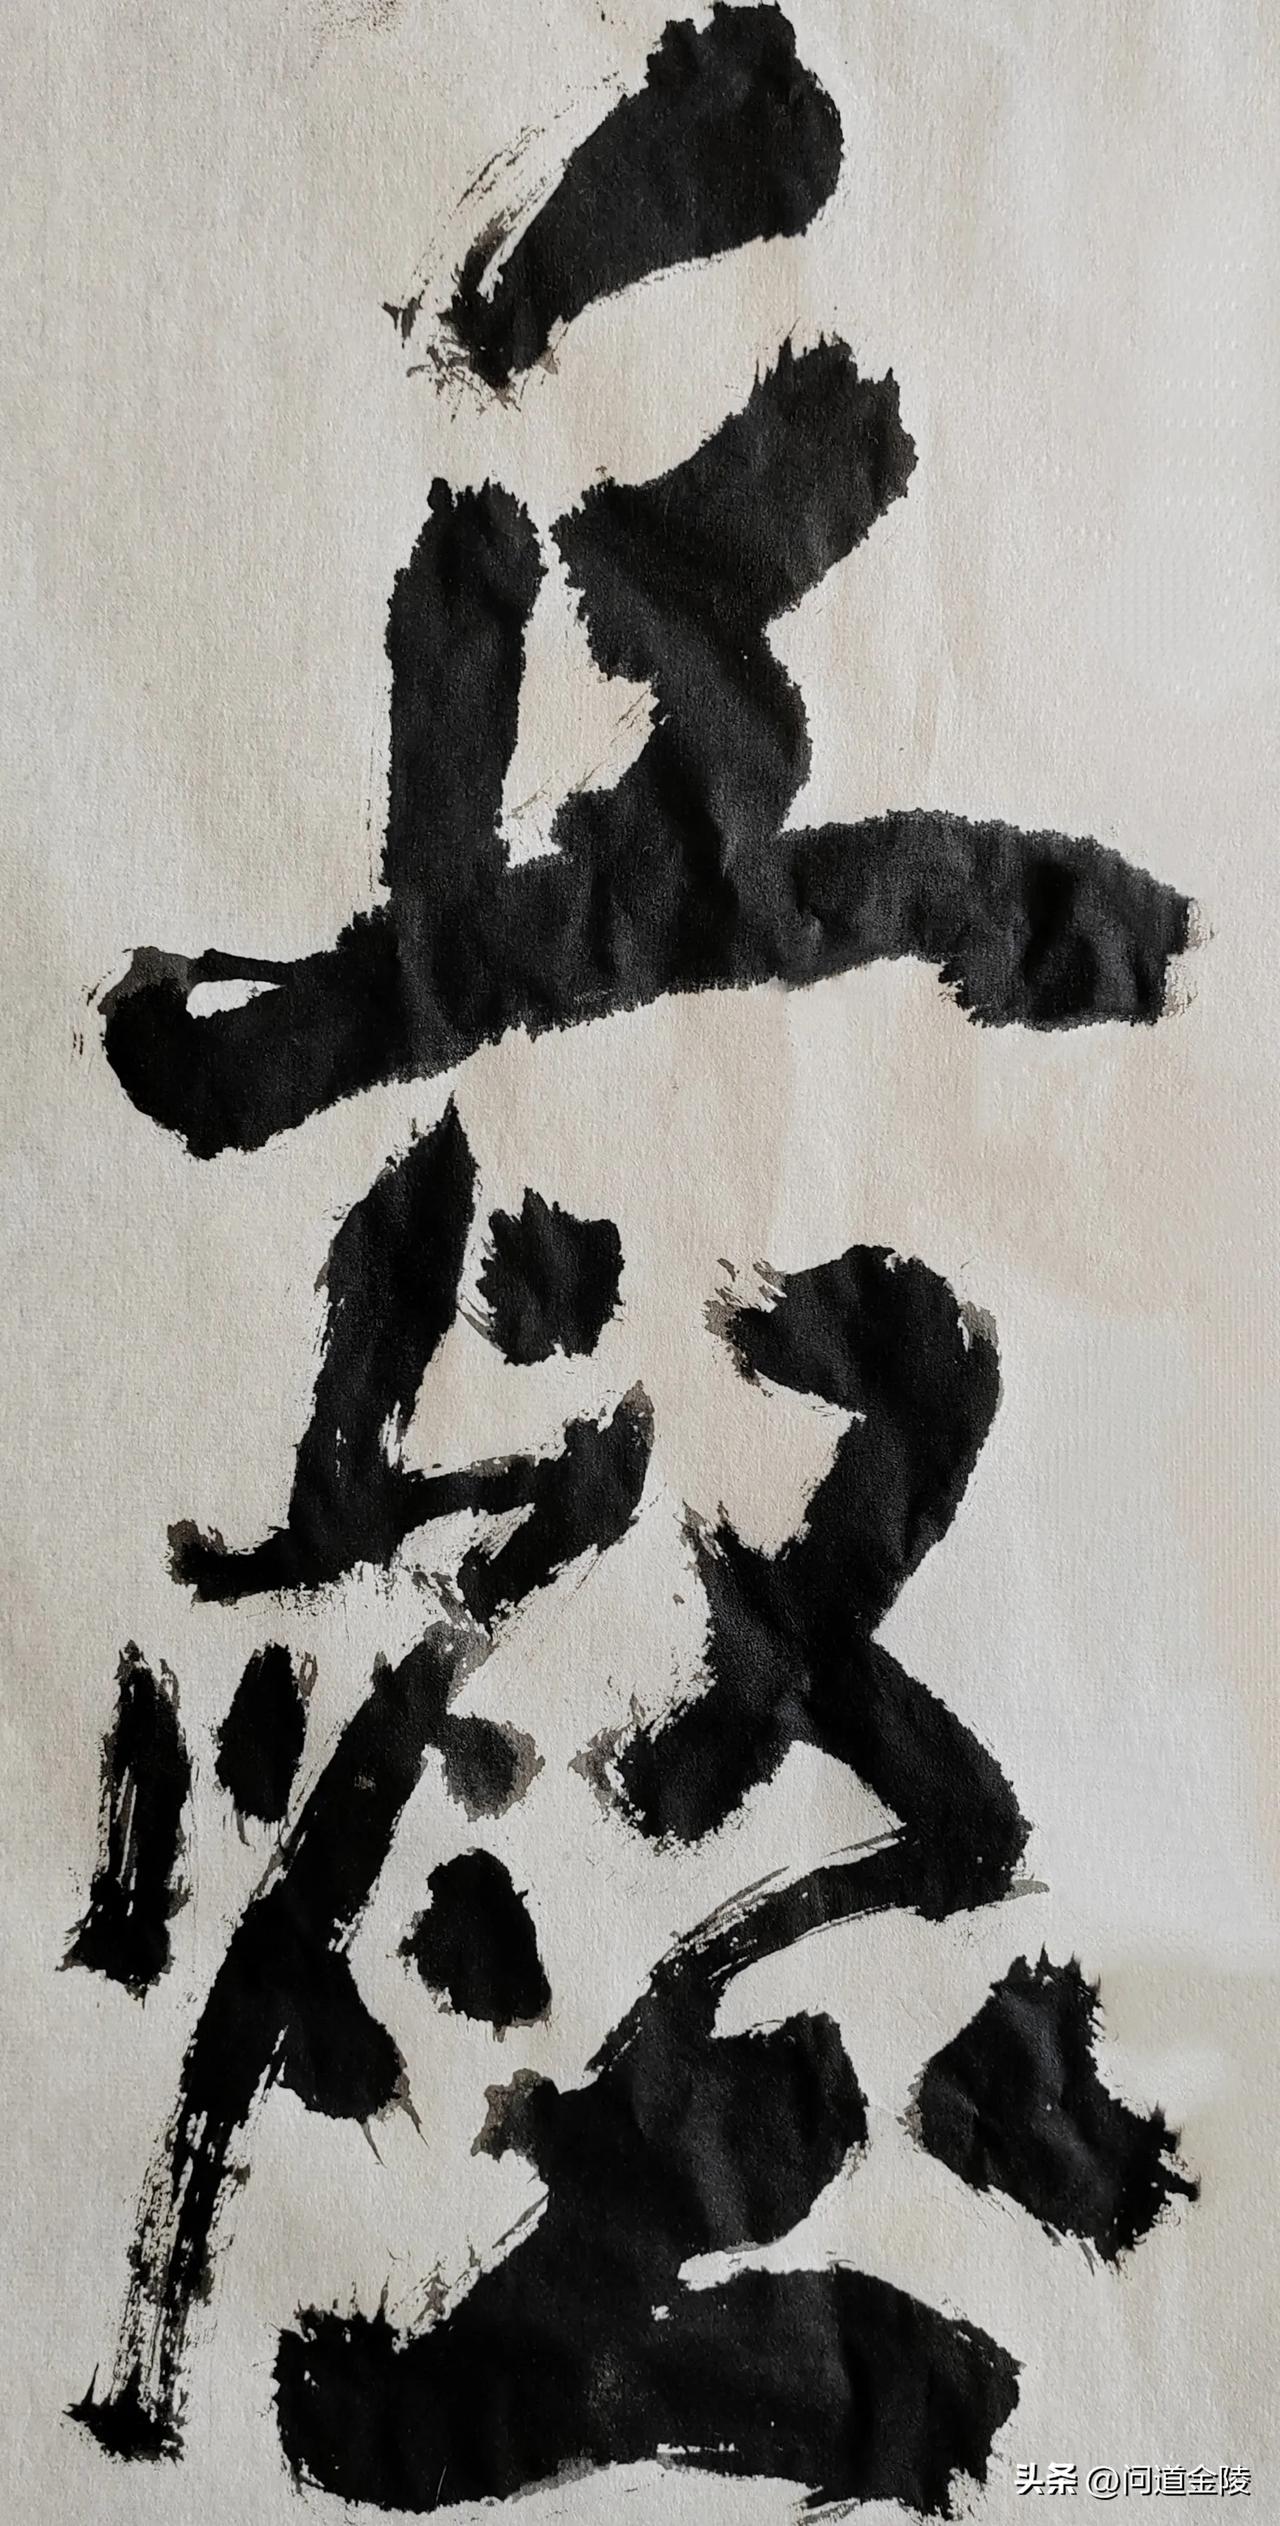 丘壑
头条 @问道金陵